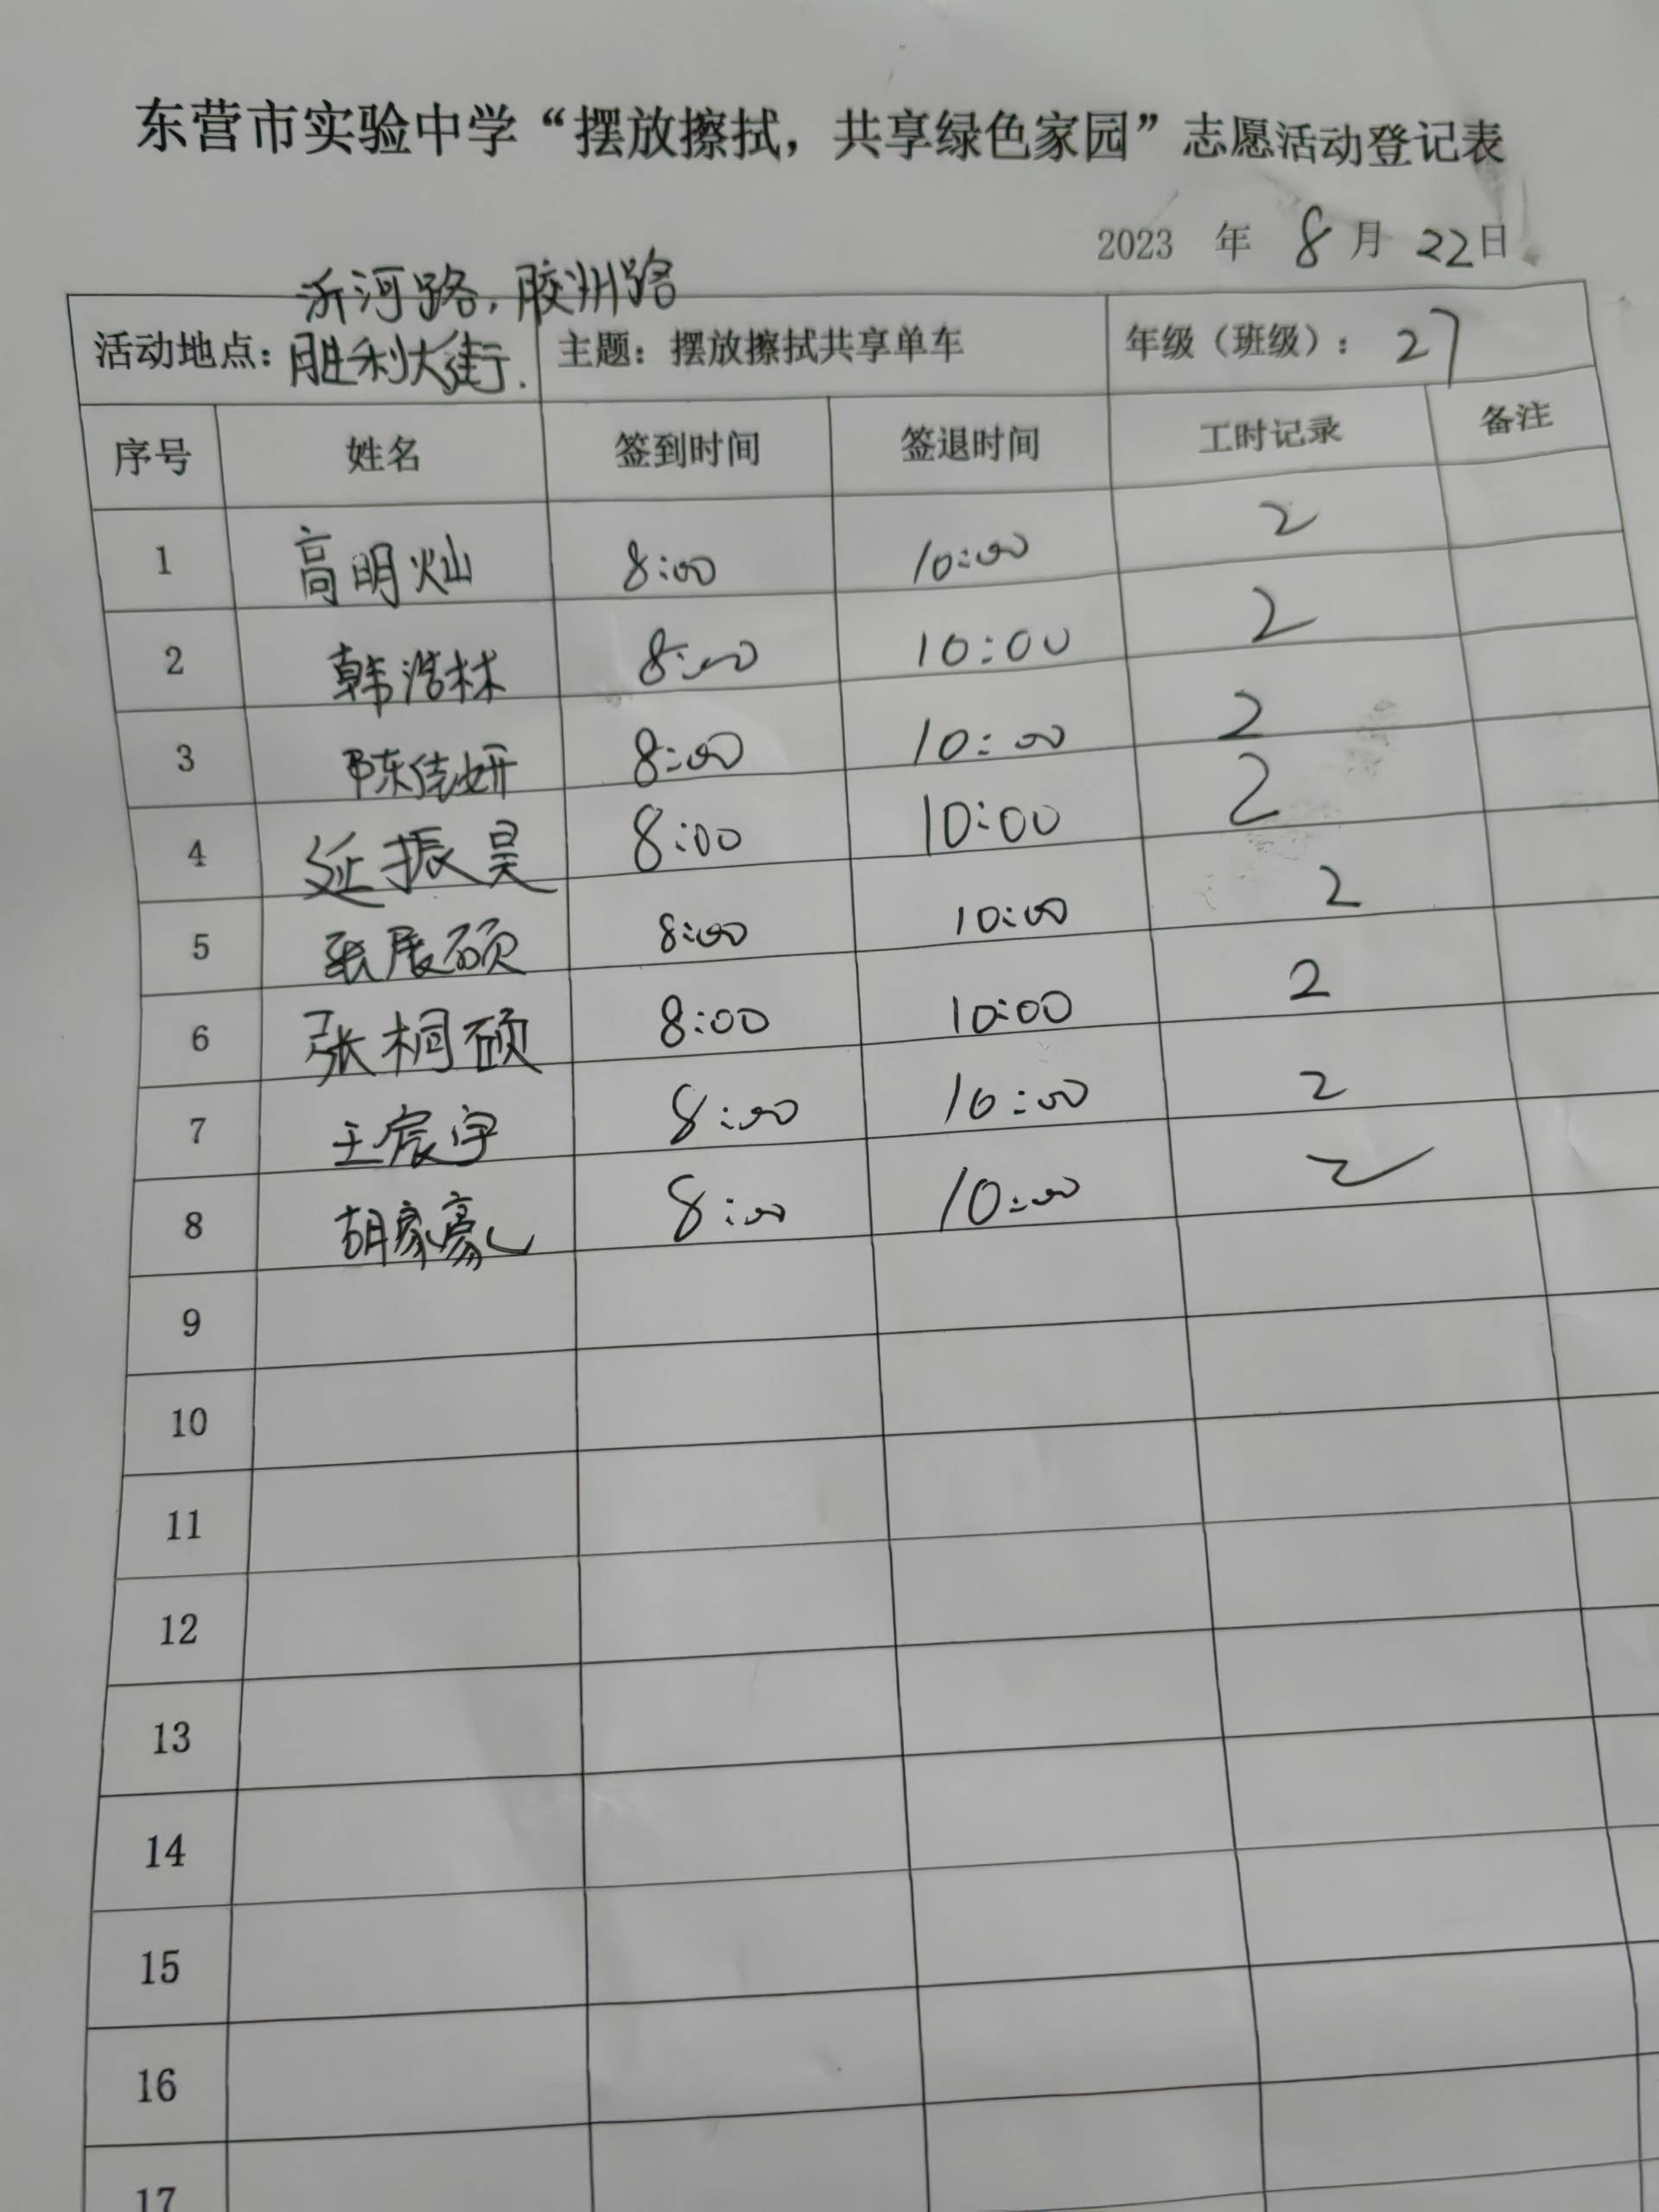 东营市实验中学“摆放擦拭，共享绿色家园”志愿活动登记表
2023 年 8 月 22日
沂河路，胶州路
活动地点：胜利大街． 主题：摆放擦拭共享单车 年级（班级）：27
序号 姓名 签到时间 签退时间 工时记录 备注
1 高明灿 8:00 10:00 2
2 韩浩林 8:00 10:00 2
3 陈佳妍 8:00 10:00 2
4 延振昊 8:00 10:00 2
5 张展硕 8:00 10:00 2
6 张桐硕 8:00 10:00 2
7 王宸宇 8:00 10:00 2
8 胡家豪 8:00 10:00 2
9
10
11
12
13
14
15
16
17